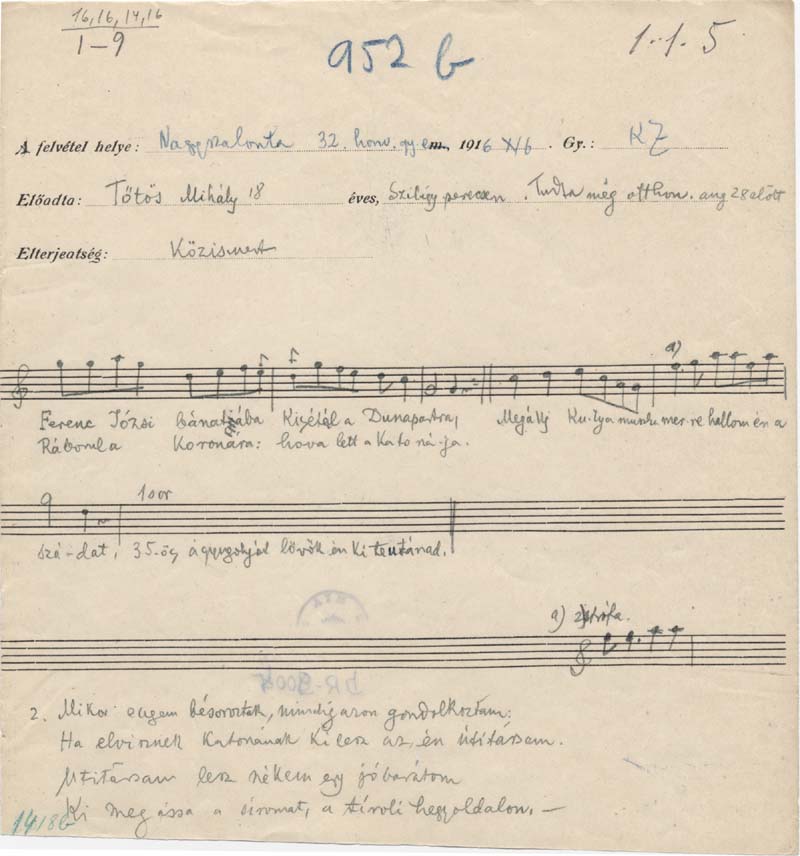 16, 16, 14, 16
1-9
952 b
1.-1. 5
A felvétel helye: Nagyszalonta 32. honv. gy. e. m., 1916 X/6. Gy.: KZ
Előadta: Tőtős Mihály 18 éves, Szilágyperecsen. Tudta még otthon. aug 28 előtt
Elterjedtség: Közismert
a)
Ferenc Józsi bánatjába Kisétál a Dunapartra, Megállj Ku-tya muszka mer-re hallom én a
Ráborul a Koronára: hova lett a Kato-ná-ja.
1 sor
szá-dat, 35-ös ágyugolyját lövök én ki teutánad.
a) 2 strófa.
DR-9004
2. Mikor engem bésoroztak, mindig azon gondolkoztam:
Ha elvisznek Katonának Ki lesz az én útitársam.
Utitársam lesz nékem egy jóbarátom
Ki megássa a síromat, a tíroli hegyoldalon. —
14186